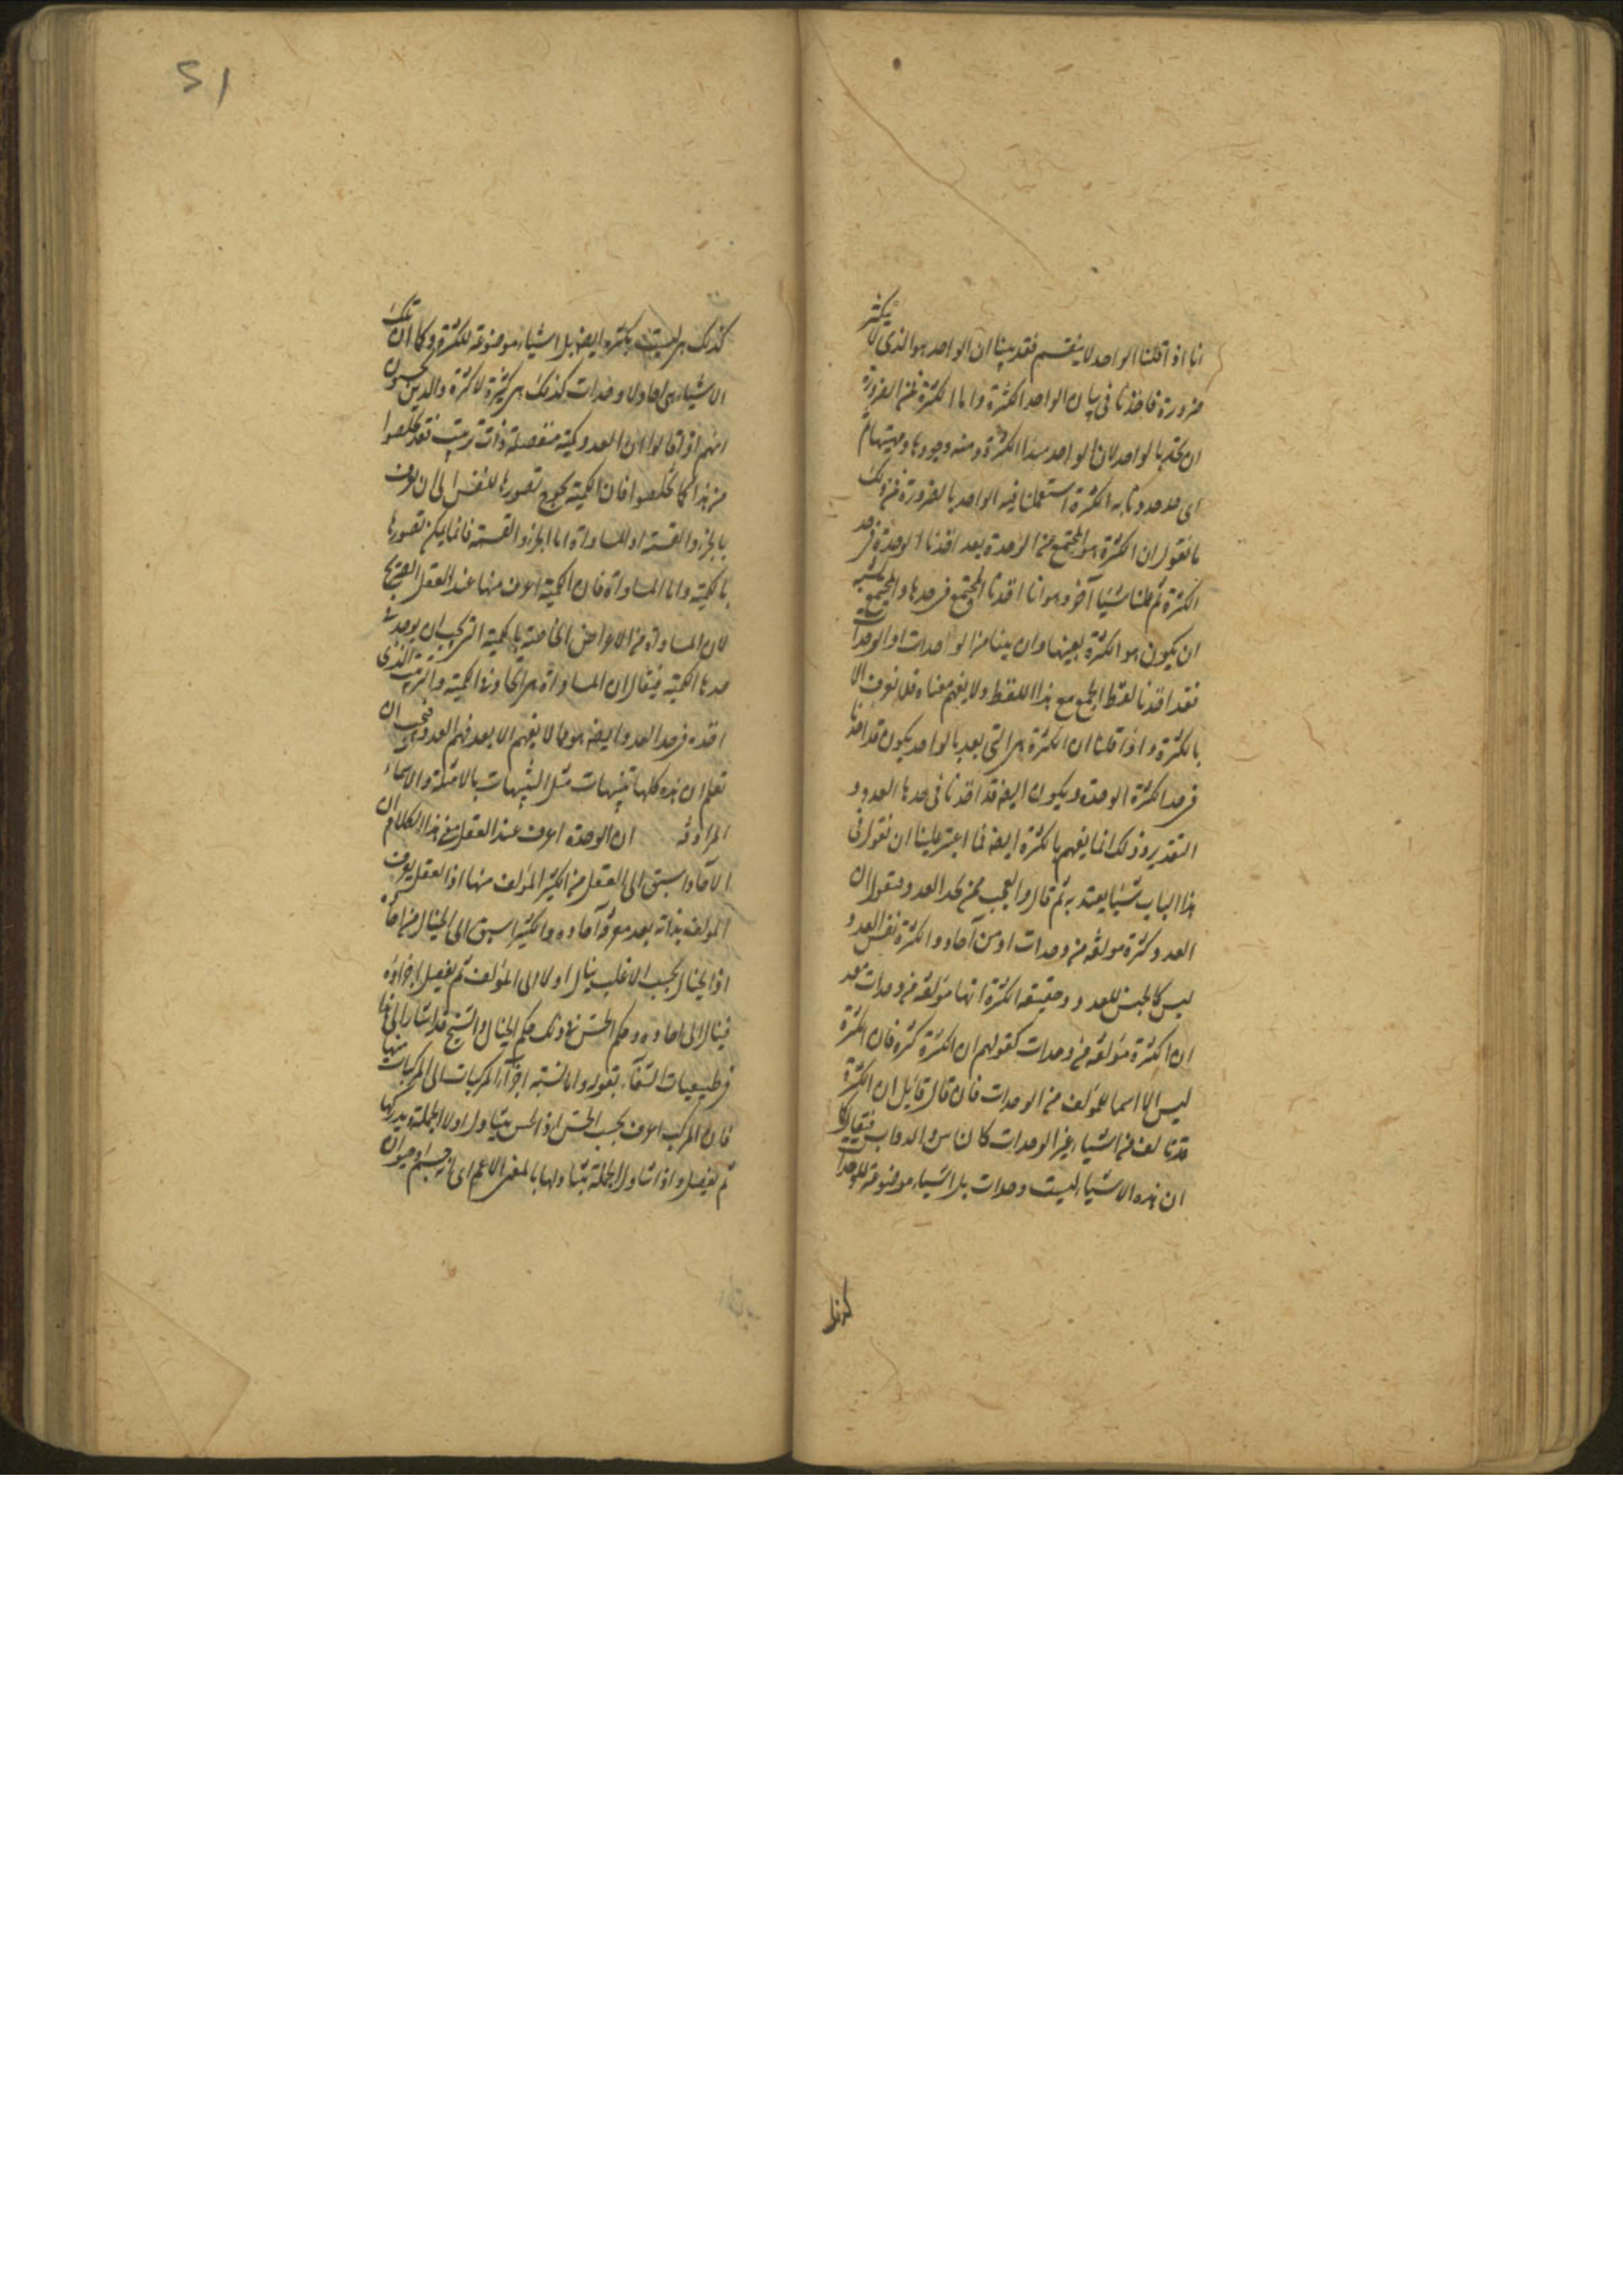 انا اذا قلنا الواحد لا ينقسم فقد بينا ان الواحد هو الذى لا يتكثر
ضرورة فاخذنا فى بيان الواحد الكثرة واما الكثرة فمن الضرورة
ان تحد بالواحد لان الواحد مبدا الكثرة ومنه وجودها ومهيتها ثم
اى حد حددنا به الكثرة استعملنا فيه الواحد بالضرورة فمن ذلك
ما نقول ان الكثرة هو المجتمع من الوحدة بعد اخذنا الوحدة فى حد
الكثرة ثم عملنا شيئا آخر وهو انا اخذنا المجتمع فى حدها والمجتمع يشبه
ان يكون هو الكثرة بعينها وان بينا من الواحدات او الوحدات
فقد اخذنا لفظ الجمع مع هذا اللفظ ولا يفهم معناه ولا يعرف الا
بالكثرة واذا قلنا ان الكثرة هى التى تعد بالواحد يكون قد اخذنا
فى حد الكثرة الوحدة ويكون ايضا قد اخذنا فى حدها العدد و
التقدير وذلك انما يفهم بالكثرة ايضا فما اعسر علينا ان نقول فى
هذا الباب شيئا يعتد به ثم قال والعجب ممن يحد العدد ويقول ان
العدد كثرة مولفة من وحدات او من آحاد والكثرة نفس العدد
ليس كالجنس للعدد وحقيقة الكثرة انها مؤلفة من وحدات فقولهم
ان الكثرة مؤلفة من وحدات كقولهم ان الكثرة كثرة فان الكثرة
ليس الا اسما للمؤلف من الوحدات فان قال قائل ان الكثرة
قد تالف من اشياء غير الوحدات كالناس والدواب فيقال كما
ان هذه الاشياء ليست وحدات بل اشياء موضوعة للوحدات
كذلك
كذلك هى ليست بكثرة ايضا بل اشياء موضوعة للكثرة وكما ان تلك
الاشياء هى احاد لا وحدات كذلك هى كثيرة لا كثرة والذين يحسبون
انهم اذا قالوا ان العدد كمية منفصلة ذات ترتيب فقد تخلصوا
من هذا فما تخلصوا فان الكمية تحوج تصورها للنفس الى ان تعرف
بالجزء والقسمة او المساواة اما الجزء والقسمة فانما يمكن تصورها
بالكمية واما المساواة فان الكمية اعرف منها عند العقل الصريح
لان المساواة من الاعراض الخاصة بالكمية التى يجب ان يوجد فى
حدها الكمية فيقال ان المساواة هى اتحاد فى الكمية والترتيب الذى
اخذ فى حد العدد ايضا هو مما لا يفهم الا بعد فهم العدد فيجب ان
تعلم ان هذه كلها تنبيهات مثل التنبيهات بالامثلة والاسماء
المرادفة ان الوحدة اعرف عند العقل فى هذا الكلام ان
الآحاد اسبق الى العقل من الكثير المؤلف منها اذ العقل يعرف
المؤلف بذاته بعد معرفة آحاده والكثير اسبق الى الخيال من احاده
اذ الخيال بحسب الاغلب ينال اولا الى المؤلف ثم يفصل اجزاؤه
فينال الى احاده وحكم الحس فى ذلك حكم الخيال والشيخ قد اشار الى هذا
فى طبيعيات الشفاء بقوله واما نسبة اجزاء المركبات الى المركبات منها
فان المركب اعرف بحسب الحس اذ الحس يتناول اولا الجملة ويدركها
ثم يفصل واذا تناول الجملة يتناولها بالمعنى الاعم اى انه جسم او حيوان